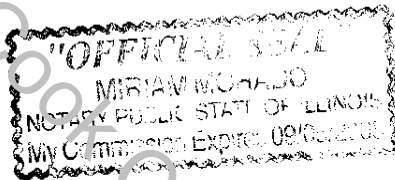 "OFFICIAL SEAL"
MIRIAM MORADO
NOTARY PUBLIC STATE OF ILLINOIS
My Commission Expires